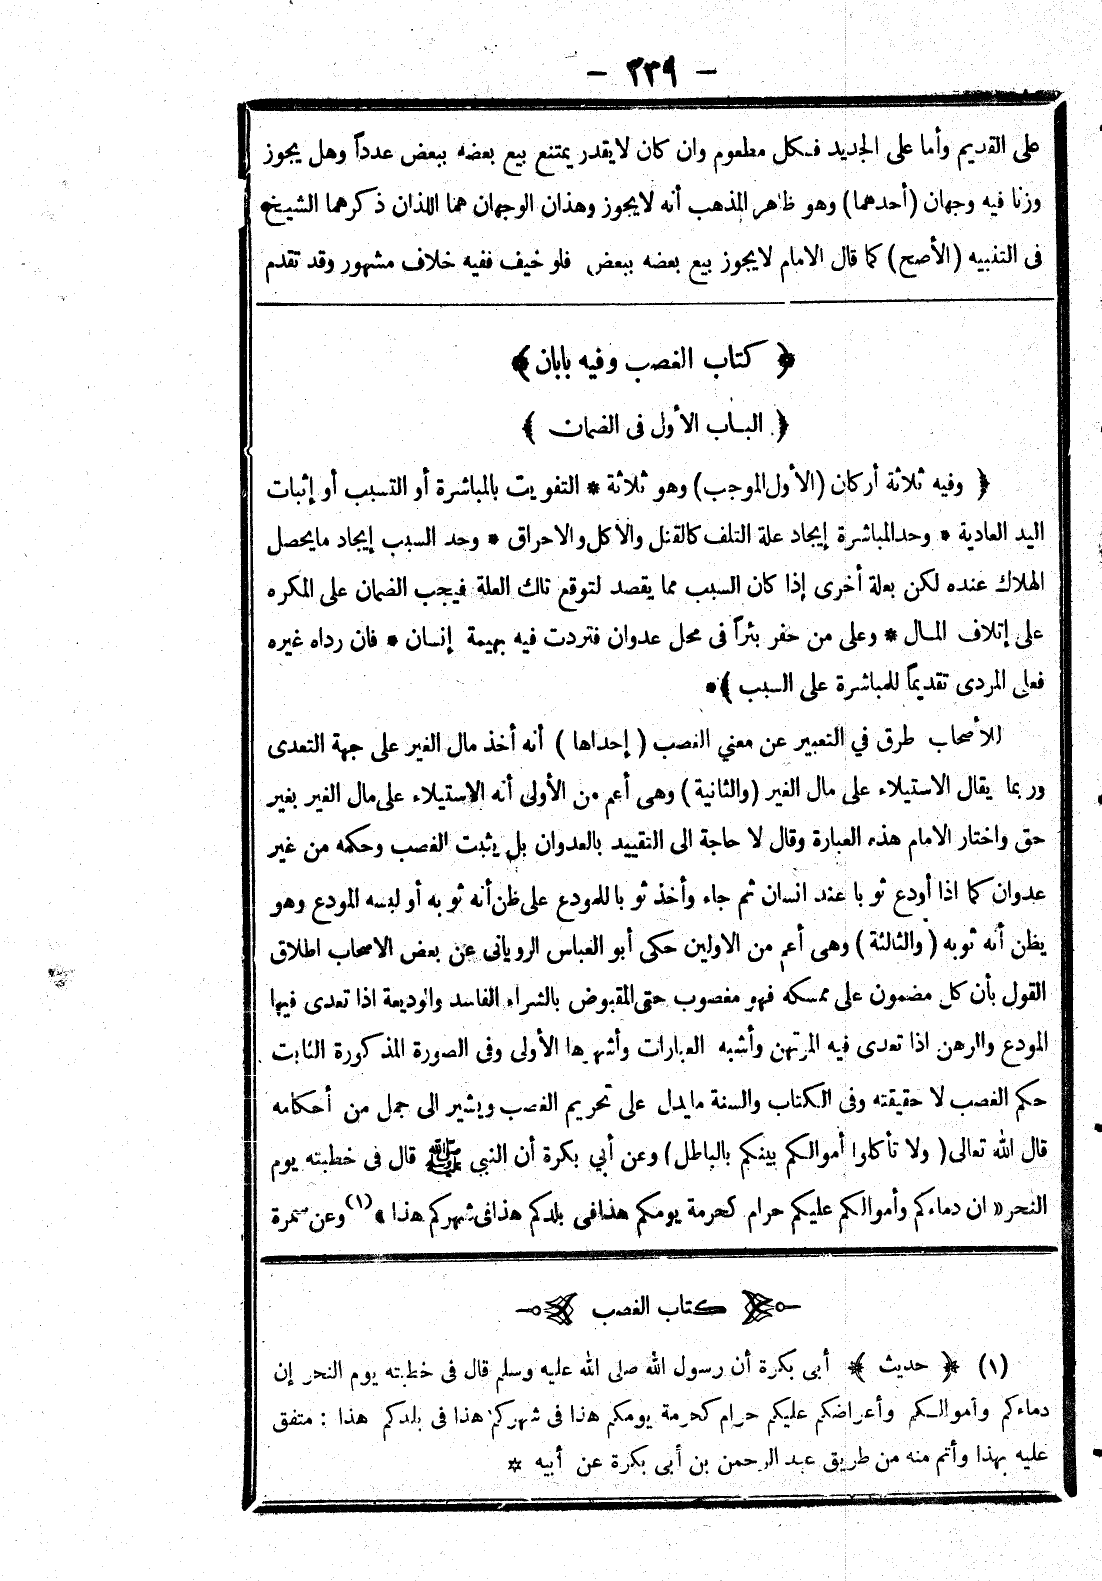 - ٢٣٩ -
على القديم وأما على الجديد فكل مطعوم وان كان لا يقدر يمتنع بيع بعضه ببعض عدداً وهل يجوز
وزنا فيه وجهان (أحدهما) وهو ظاهر المذهب أنه لا يجوز وهذان الوجهان هما اللذان ذكرهما الشيخ
فى التنبيه (الأصح) كما قال الامام لا يجوز بيع بعضه ببعض فلو خيف ففيه خلاف مشهور وقد تقدم
﴿ كتاب الغصب وفيه بابان ﴾
﴿ الباب الأول فى الضمان ﴾
﴿ وفيه ثلاثة أركان (الأول الموجب) وهو ثلاثة * التفويت بالمباشرة أو التسبب أو إثبات
اليد العادية * وحد المباشرة إيجاد علة التلف كالقتل والأكل والاحراق * وحد السبب إيجاد ما يحصل
الهلاك عنده لكن بعلة أخرى إذا كان السبب مما يقصد لتوقع تلك العلة فيجب الضمان على المكره
على إتلاف المال * وعلى من حفر بئراً فى محل عدوان فتردت فيه بهيمة إنسان * فان رداه غيره
فعلى المردى تقديماً للمباشرة على السبب ﴾ *
للأصحاب طرق في التعبير عن معني الغصب ( إحداها ) أنه أخذ مال الغير على جهة التعدى
وربما يقال الاستيلاء على مال الغير (والثانية ) وهى أعم من الأولى أنه الاستيلاء على مال الغير بغير
حق واختار الامام هذه العبارة وقال لا حاجة الى التقييد بالعدوان بل يثبت الغصب وحكمه من غير
عدوان كما اذا أودع ثوبا عند انسان ثم جاء وأخذ ثوبا للمودع على ظن أنه ثوبه أو لبسه المودع وهو
يظن أنه ثوبه ( والثالثة ) وهى أعم من الاولين حكى أبو العباس الرويانى عن بعض الاصحاب اطلاق
القول بأن كل مضمون على ممسكه فهو مغصوب حتى المقبوض بالشراء الفاسد والوديعة اذا تعدى فيها
المودع والرهن اذا تعدى فيه المرتهن وأشبه العبارات وأشهرها الأولى وفى الصورة المذكورة الثابت
حكم الغصب لا حقيقته وفى الكتاب والسنة ما يدل على تحريم الغصب ويشير الى جمل من أحكامه
قال الله تعالى ( ولا تأكلوا أموالكم بينكم بالباطل ) وعن أبي بكرة أن النبى ﷺ قال فى خطبته يوم
النحر « ان دماءكم وأموالكم عليكم حرام كحرمة يومكم هذا فى بلدكم هذا فى شهركم هذا » (١) وعن سمرة
كتاب الغصب
(١) ﴿ حديث ﴾ أبى بكرة أن رسول الله صلى الله عليه وسلم قال فى خطبته يوم النحر إن
دماءكم وأموالكم وأعراضكم عليكم حرام كحرمة يومكم هذا فى شهركم هذا فى بلدكم هذا : متفق
عليه بهذا وأتم منه من طريق عبد الرحمن بن أبى بكرة عن أبيه *